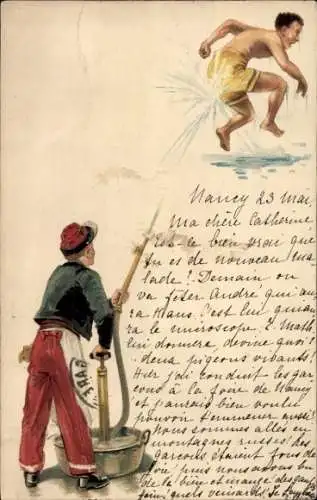 Nancy 23 mai.
Ma chère Catherine
Est-ce bien vrai que
tu es de nouveau ma
lade! Demain on
va fêter André qui au
ra ans. C'est lui qui au
ra le miroscope. E. Math.
lui donnera devine quoi?
deux pigeons vivants!
Hier j'ai conduit les gar
çons à la foire de Nancy
et j'aurais bien voulu
pouvoir t'emmener aussi!
Nous sommes allés en
montagnes russes. Les
garçons étaient fous de
joie, puis nous avons bu
de la bière et mangé des gau